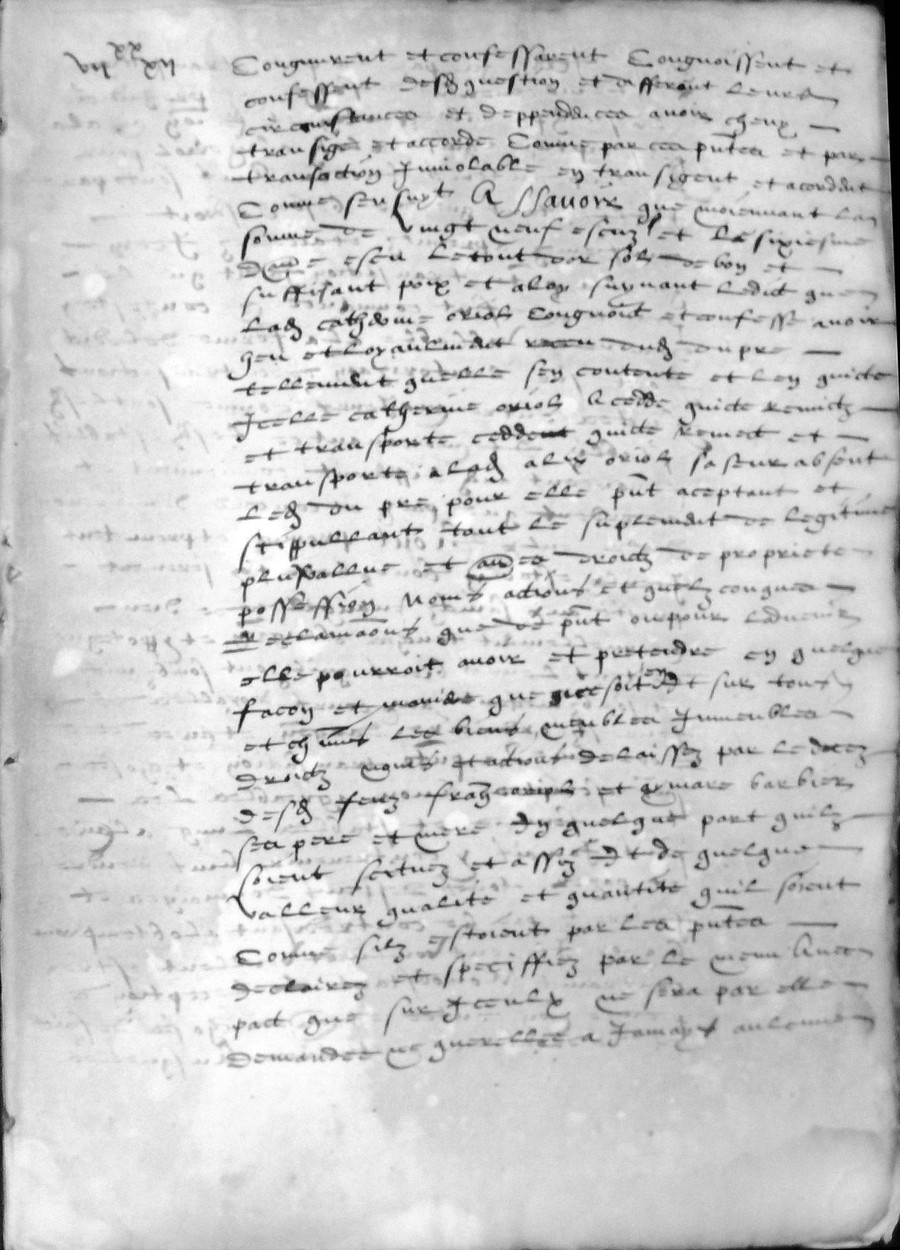 vii xx xii
Congneurent et confessarent Congnoissent et
confessent desd question et different leurs
circonstances et deppendences avoir cheux
transigé et accordé Comme par ces pntes et par
transaction Inviolable en transigent et acordent
Comme sensuyt Assavoir que moienant la
somme de Vingt neuf escuz et le sixiesme
d'aultre escu le tout dor sol de bon et
suffisant poix et aloy suyvant ledict que
lad catherine oriol Congnoit et confesse avoir
heu et loyaulment receu dud du pre
tellement quelle sen contente et len quicte
Icelle catherine oriol A cedde quicte remictz
et transporte ceddent quicte remect et
transporte a lad alix oriol sa seur absent
led du pre pour elle pnt aceptant et
stippullant tout le suplement de legitime
plusvallue et aultres droictz de propriete
possession noms actions et quelzconques
reclamaons que de pnt ou pour ladvenir
elle pourroit avoir et pretendre en quelque
facon et maniere que ce soit et sur tous
et chuns les biens meubles Immeubles
droictz noms et actions delaissez par le deces
desd feuz franz oriol et marie barbier
ses pere et mere En quelque part quilz
soient scituez et assiz et de quelque
Valleur qualite et quantite quil soient
Comme silz estoient par les pntes
declairez et speciffiez par le menu Avec
pact que sur Iceulx ne sera par elle
demandee ne querellee a Jamays aulcune